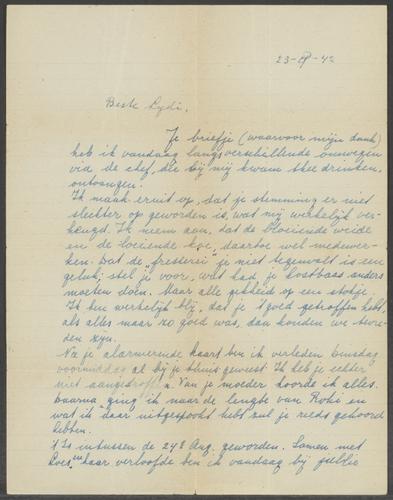 23-8-42
Beste Lydi.
Je briefje (waarvoor mijn dank)
heb ik vandaag langs verschillende omwegen
via de chef, die bij mij kwam thee drinken,
ontvangen.
Ik maak eruit op, dat je stemming er niet
slechter op geworden is, wat mij werkelijk ver-
heugd. Ik neem aan, dat de bloeiende weide
en de loeiende koe, daartoe wel medewer-
ken. Dat de "fresserei" je niet tegenvalt is een
geluk; stel je voor, wat had je kostbaas anders
moeten doen. Maar alle gekheid op een stokje.
Ik ben werkelijk blij, dat je 't goed getroffen hebt,
als alles maar zo goed was, dan konden we tevre-
den zijn.
Na je alarmerende kaart ben ik verleden dinsdag
voormiddag al bij je thuis geweest. Ik heb je echter
niet aangetroffen. Van je moeder hoorde ik alles.
Daarna ging ik naar de lengte van Rohi en
wat ik daar uitgespookt heb zul je reeds gehoord
hebben.
't Is intussen de 24e Aug. geworden. Samen met
Loes en haar verloofde ben ik vandaag bij jullie